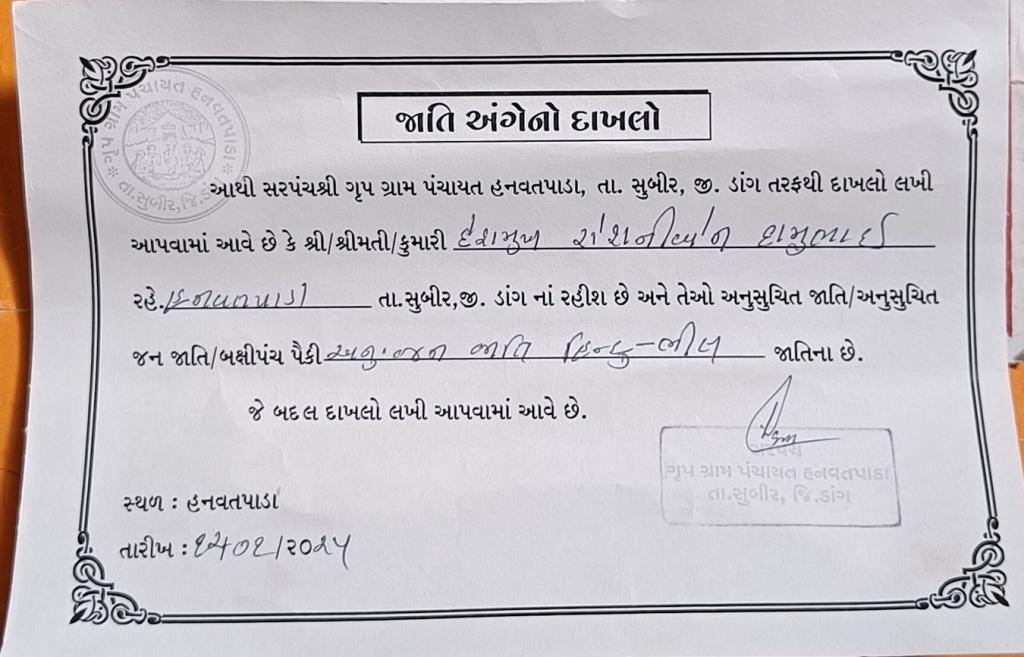 ગૃપ ગ્રામ પંચાયત હનવતપાડા
તા.સુબીર,જિ.ડાંગ
જાતિ અંગેનો દાખલો
આથી સરપંચશ્રી ગૃપ ગ્રામ પંચાયત હનવતપાડા, તા. સુબીર, જી. ડાંગ તરફથી દાખલો લખી
આપવામાં આવે છે કે શ્રી/શ્રીમતી/કુમારી દેશમુખ
રહે. હનવતપાડા તા.સુબીર,જી. ડાંગ નાં રહીશ છે અને તેઓ અનુસુચિત જાતિ/અનુસુચિત
જન જાતિ/બક્ષીપંચ પૈકી અનુ.જન જાતિ હિન્દુ-ભીલ જાતિના છે.
જે બદલ દાખલો લખી આપવામાં આવે છે.
સરપંચ
ગૃપ ગ્રામ પંચાયત હનવતપાડા
તા.સુબીર, જિ.ડાંગ
સ્થળ : હનવતપાડા
તારીખ :